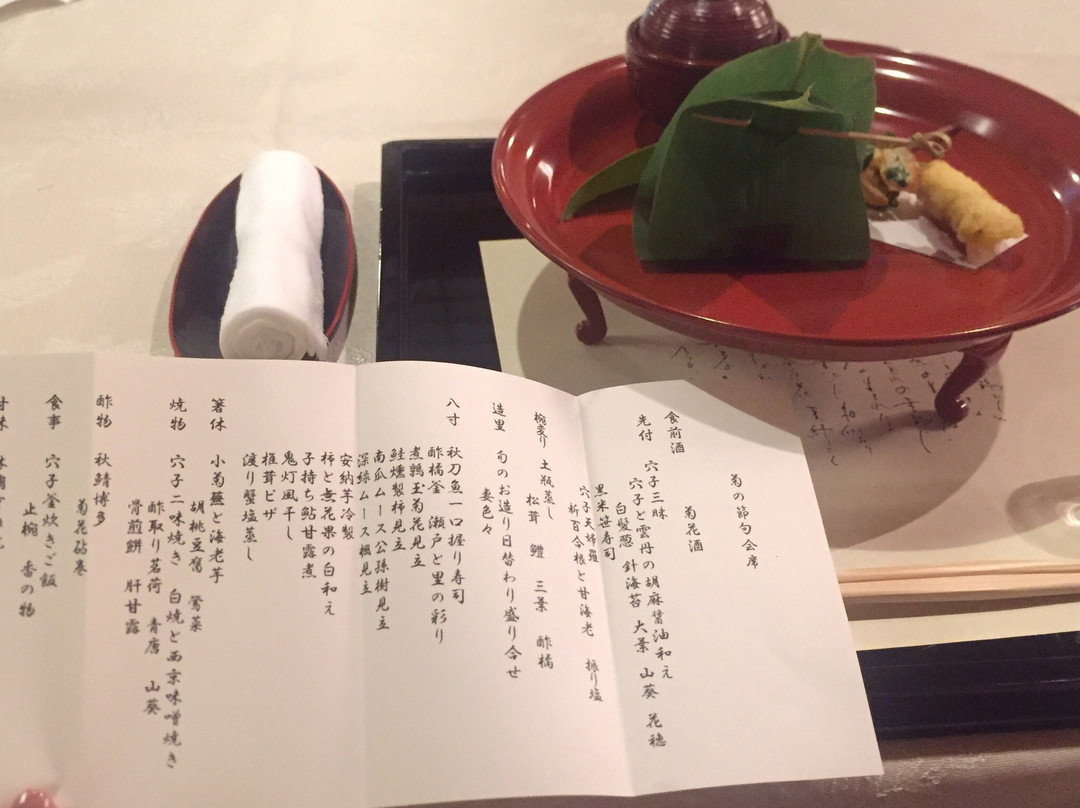 菊の節句会席
食前酒 菊花酒
先付 穴子三昧
穴子と雲丹の胡麻醤油和え
白髪葱 針海苔 大葉 山葵 花穂
黒米笹寿司
穴子天婦羅
新百合根と甘海老 振り塩
椀変り 土瓶蒸し
松茸 鱧 三葉 酢橘
造里 旬のお造り日替わり盛り合せ
妻色々
八寸 秋刀魚一口握り寿司
酢橘釜 瀬戸と里の彩り
煮鶉玉菊花見立
鮭燻製柿見立
南瓜ムース公孫樹見立
深緑ムース楓見立
安納芋冷製
柿と無花果の白和え
子持ち鮎甘露煮
鬼灯風干し
椎茸ピザ
渡り蟹塩蒸し
箸休 小蕪と海老芋
胡桃豆腐 鶯菜
焼物 穴子二味焼き 白焼と西京味噌焼き
酢取り茗荷 青唐 山葵
骨煎餅 肝甘露
酢物 秋鯖博多
菊花砧巻
食事 穴子釜炊きご飯
止椀 香の物
甘味